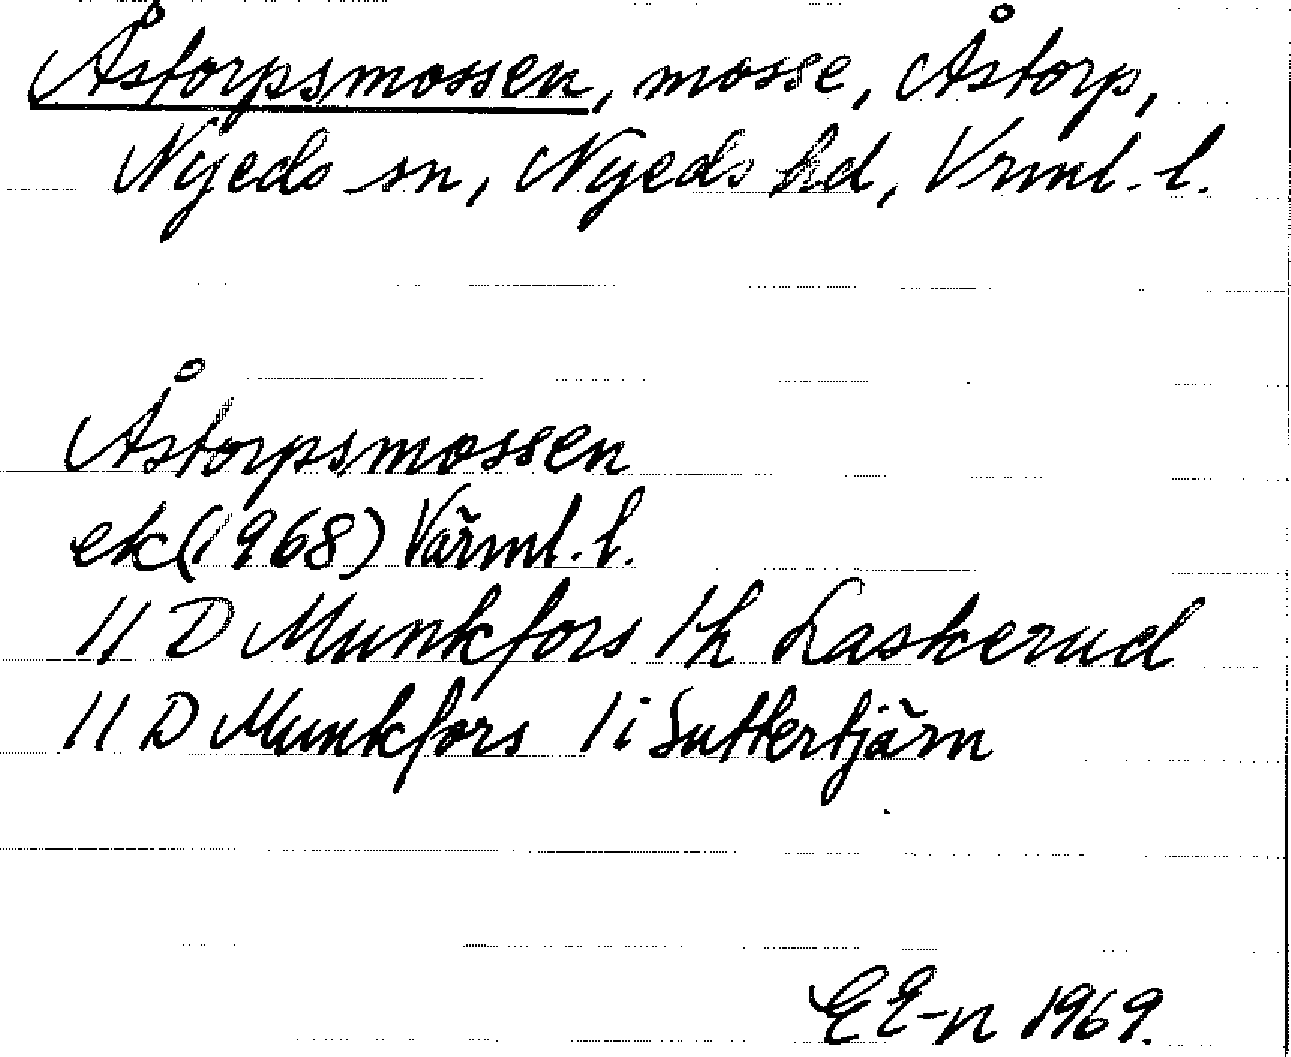 Åstorpsmossen, mosse, Åstorp,
Nyeds sn, Nyeds hd, Vrml. l.
Åstorpsmossen
ek (1968) Värml. l.
11 D Munkfors 1h Laskerud
11 D Munkfors 1i Suttertjärn
E E-n 1969.